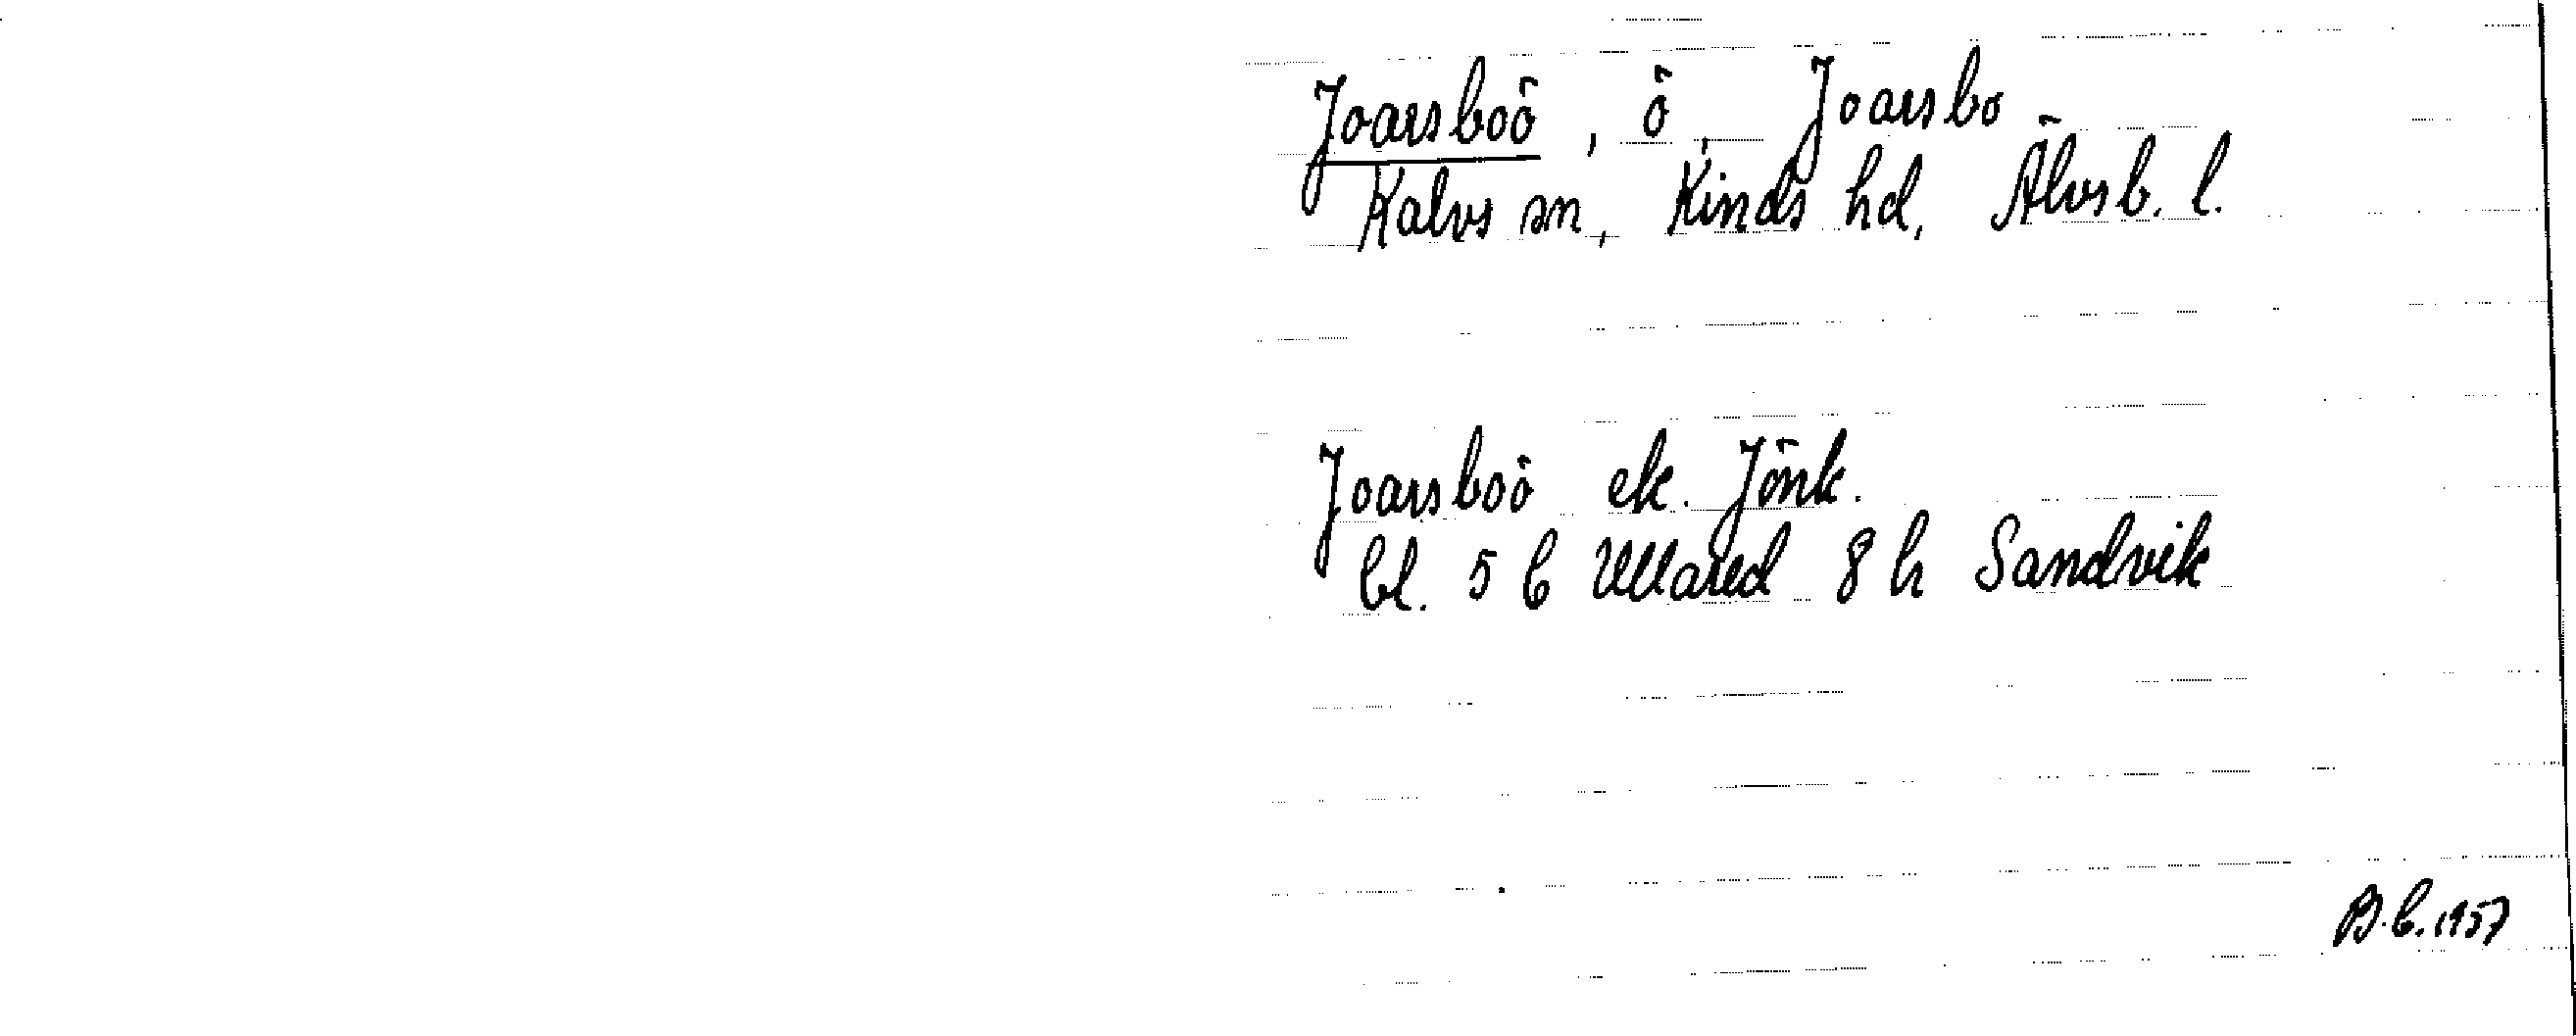 Joarsboö, ö, Joarsbo
Kalvs sn, Kinds hd, Älvsb. l.
Joarsboö ek. Jönk.
bl. 5 C Ullared 8 h Sandvik
B.C. 1957